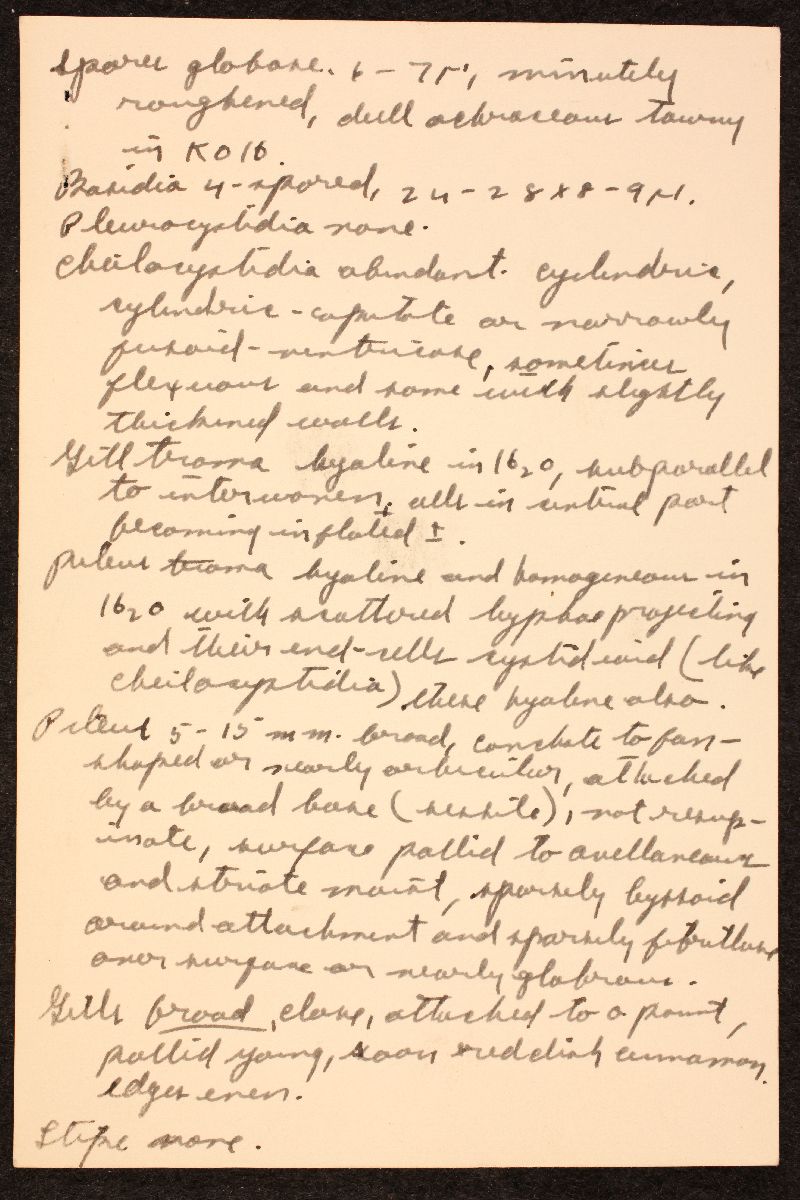 Spores globose. 6 - 7µ, minutely
roughened, dull ochraceous tawny
in KOH.
Basidia 4-spored, 24-28x8-9µ.
Pleurocystidia none.
Cheilocystidia abundant. cylindric,
cylindric-capitate or narrowly
fusoid-ventricose, sometimes
flexuous and some with slightly
thickened walls.
Gill trama hyaline in H20, subparallel
to interwoven, cells in central part
becoming inflated ±.
Pileus trama hyaline and homogeneous in
H20 with scattered hyphae projecting
and their end-cells cystidioid (like
cheilocystidia) these hyaline also.
Pileus 5-15 mm. broad, conchate to fan-
shaped or nearly orbicular, attached
by a broad base (sessile), not resup-
inate, surface pallid to avellaneous
and striate moist, sparsely byssoid
around attachment and sparsely fibrillose
over surface or nearly glabrous.
Gills broad, close, attached to a point,
pallid young, soon reddish cinnamon,
edges even.
Stipe none.